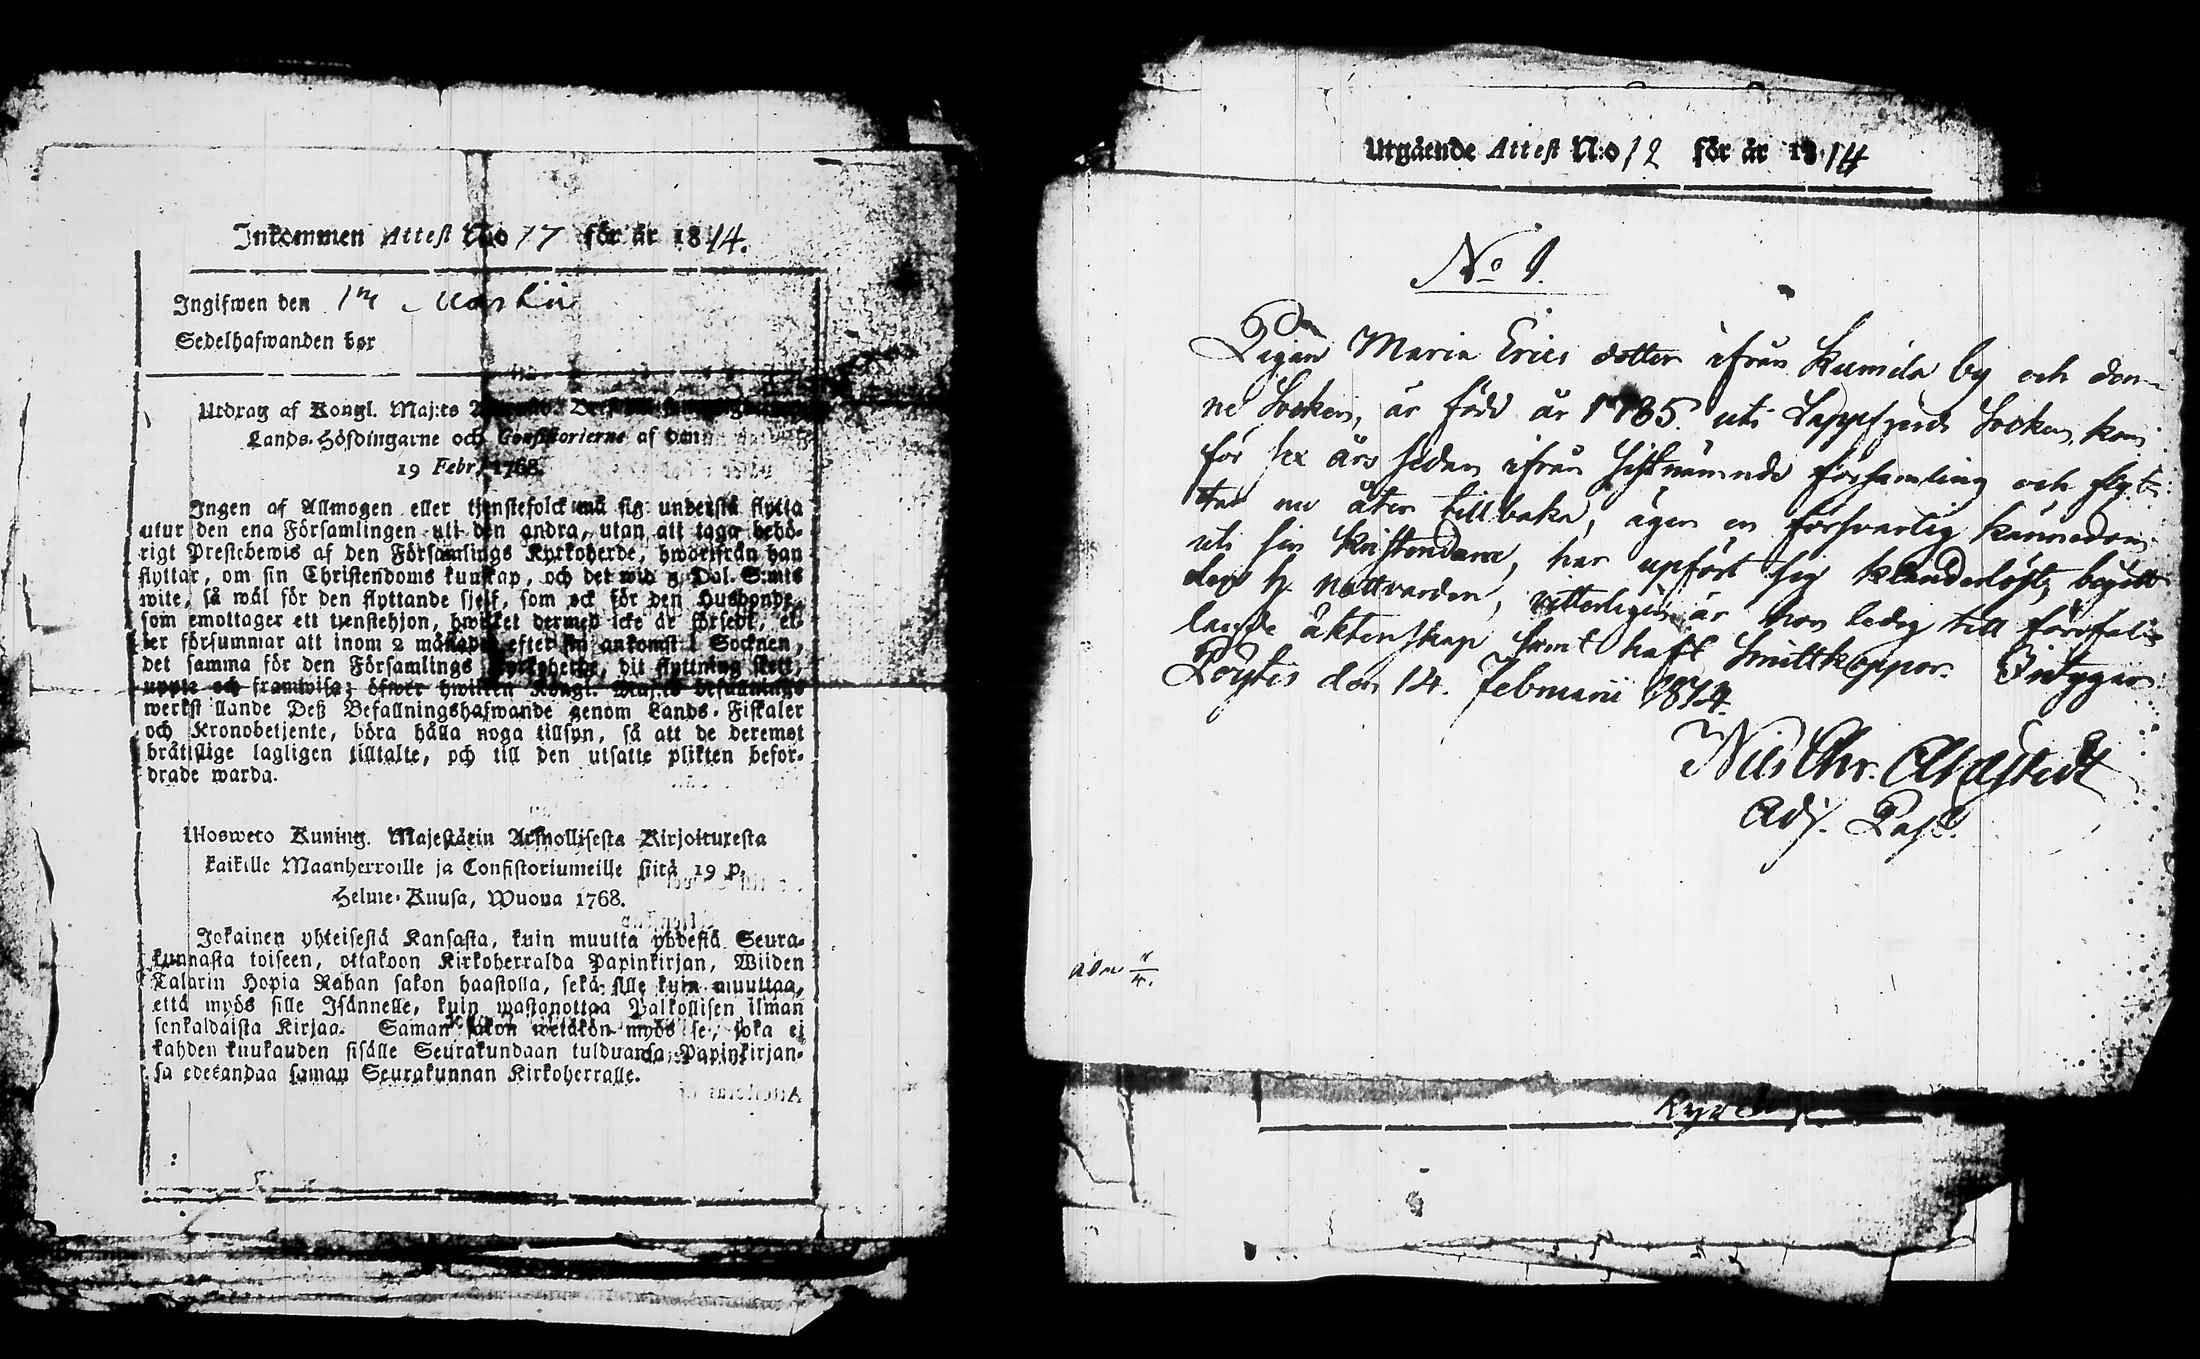 Inkommen Attest N:o 17 för år 1814.
Ingifwen den 1 Martii
Sedelhafwanden bor
Utdrag af Kongl. Maj:ts
Lands-Höfdingarne och Consistorierne af den
19 Febr. 1768.
Ingen af Allmogen eller tjenstefolck må sig understå flytta
utur den ena Församlingen uti den andra, utan att taga behö-
rigt Prestebewis af den Församlings Kyrkoherde, hworifrån han
flyttar, om sin Christendoms kunskap, och det wid 5 Dal. S:mts
wite, så wäl för den flyttande sjelf, som ock för den Husbonde,
som emottager ett tjenstehjon, hwilket dermed icke är försedt, el-
ler försummar att inom 2 månader efter sin ankomst i Socknen,
det samma för den Församlings Kyrkoherde, dit flyttning skett,
uppte och framwisa; öfwer hwilken Kongl. Maj:ts befallnings
werkställande Deß Befallningshafwande genom Lands-Fiskaler
och Kronobetjente, böra hålla noga tillsyn, så att de deremot
bråtslige lagligen tilltalte, och till den utsatte plikten befor-
drade warda.
Mosweto Kuning. Majestätin Armollisesta Kirjoituxesta
kaikille Maanherroille ja Consistoriumeille siitä 19 p.
Helme-Kuusa, Wuona 1768.
Jokainen yhteisestä Kansasta, kuin muutta yhdestä Seura-
kunnasta toiseen, ottakoon Kirkoherralda Papinkirjan, Wiiden
Talarin Hopia Rahan sakon haastolla, sekä sille kuin muuttaa,
että myös sille Isännelle, kuin wastanottaa Palkollisen ilman
senkaldaista Kirjaa. Saman sakon wetäkön myös se, joka ei
kahden kuukauden sisälle Seurakundaan tulduansa, Papinkirjan-
sa edesandaa saman Seurakunnan Kirkoherralle.
Utgående Attest N:o 12 för år 1814
No 1.
Pigan Maria Erics dotter ifrån Kumila by och den-
ne Socken, är född år 1785. uti Lappfjerds Socken, kom
för sex års sedan ifrån sistnämnde församling och flyt-
tar nu åter tillbaka, äger en försvarlig kännedom
uti sin kristendom, har upfört sig klanderlöst, begått
des h. nattvarden, vitterligen är hon ledig till förefal-
lande äktenskap samt haft Smittkoppor. Intygar
Pöytis den 14. Februarii 1814.
Nils Chr.
Adj. Past.